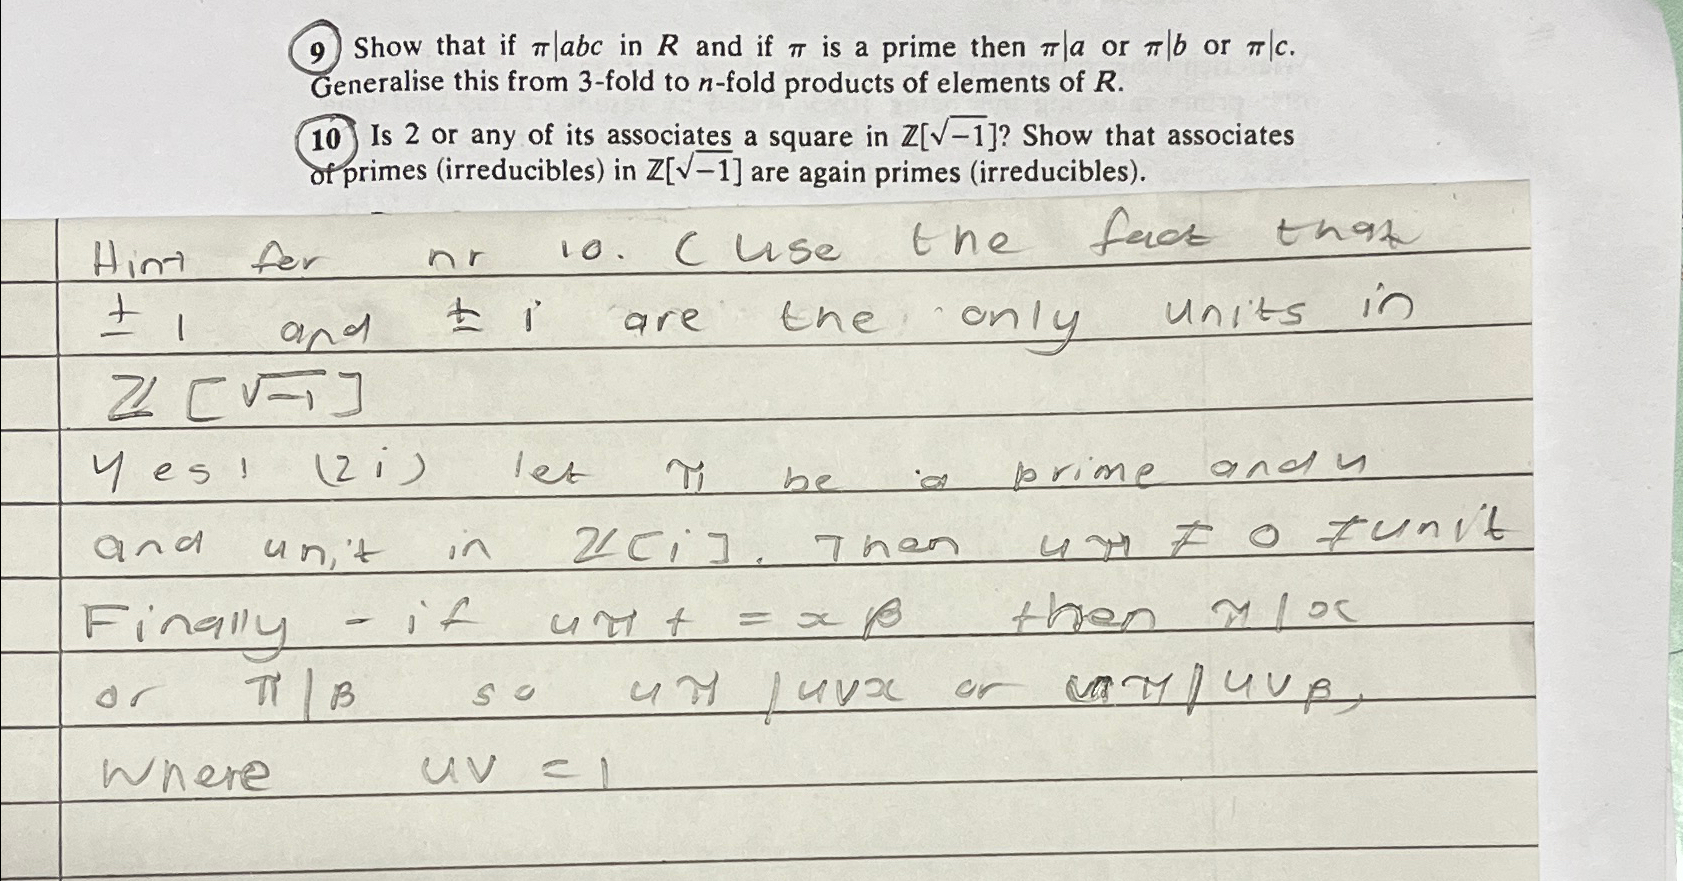 9 Show that if π|abc in R and if π is a prime then π|a or π|b or π|c.
Generalise this from 3-fold to n-fold products of elements of R.
10 Is 2 or any of its associates a square in ℤ[√−1]? Show that associates
of primes (irreducibles) in ℤ[√−1] are again primes (irreducibles).
Hint for nr 10. (Use the fact that
± 1 and ± i are the only units in
ℤ [√−1]
Yes! (2i) let π be a prime and u
and unit in ℤ[i]. Then uπ ≠ 0 ≠ unit
Finally - if uπt = xβ then π|x
or π|β so uπ |uvx or uπ|uvβ,
where uv = 1